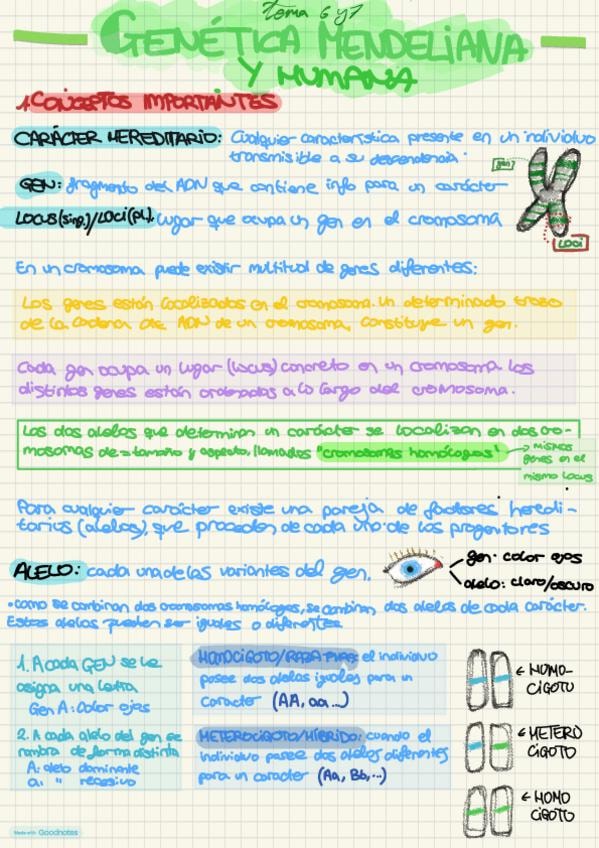 tema 6 y 7
GENÉTICA MENDELIANA
Y HUMANA
1. CONCEPTOS IMPORTANTES
CARÁCTER HEREDITARIO: Cualquier característica presente en un individuo
transmisible a su descendencia.
gen
GEN: fragmento del ADN que contiene info para un carácter
LOCUS (sing.)/LOCI (pl.): lugar que ocupa un gen en el cromosoma
LOCI
En un cromosoma puede existir multitud de genes diferentes:
Los genes están localizados en el cromosoma. Un determinado trozo
de la cadena de ADN de un cromosoma, constituye un gen.
Cada gen ocupa un lugar (locus) concreto en un cromosoma los
distintos genes están ordenados a lo largo del cromosoma.
Los dos alelos que determinan un carácter se localizan en dos cro-
mosomas de = tamaño y aspecto, llamados "cromosomas homólogos"
→ mismos
genes en el
mismo locus
Para cualquier carácter existe una pareja de factores heredi-
tarios (alelos), que proceden de cada uno de los progenitores
ALELO: cada una de las variantes del gen.
gen: color ojos
alelo: claro/oscuro
•como se combinan dos cromosomas homólogos, se combinan dos alelos de cada carácter.
Estos alelos pueden ser iguales o diferentes
1. A cada GEN se le
asigna una letra
Gen A: Color ojos
2. A cada alelo del gen se
nombra de forma distinta
A: alelo dominante
a: " recesivo
HOMOCIGOTO/RAZA PURA: el individuo
posee dos alelos iguales para un
caracter (AA, aa...)
HETEROCIGOTO/HÍBRIDO: cuando el
individuo posee dos alelos diferentes
para un caracter (Aa, Bb,...)
← HOMO-
CIGOTO
← HETERO
CIGOTO
← HOMO
CIGOTO
Made with Goodnotes